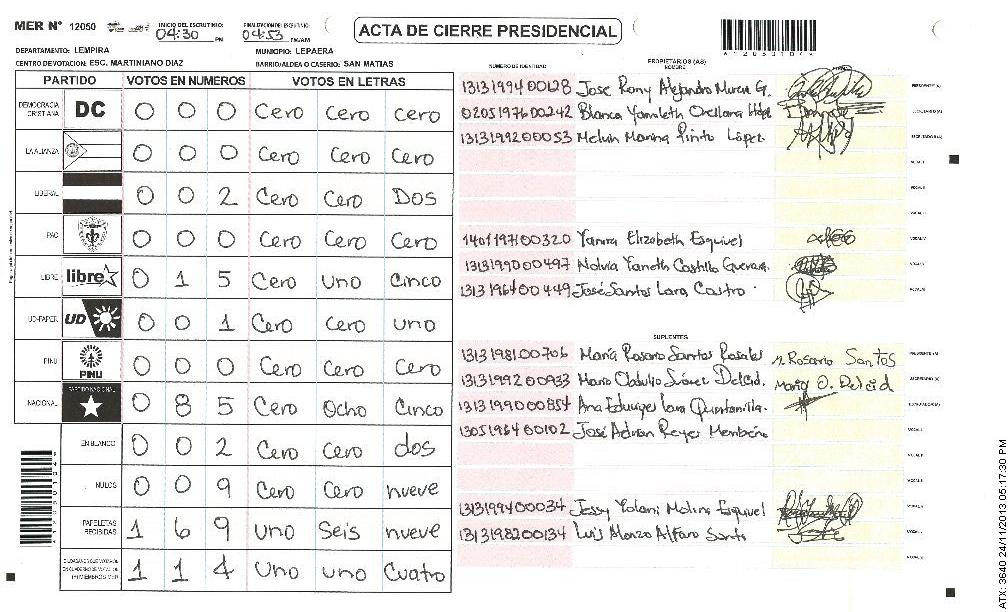 MER N° 12050 INICIO DEL ESCRUTINIO: 04:30 PM FINALIZACIÓN DEL ESCRUTINIO: 04:53 PM/AM
ACTA DE CIERRE PRESIDENCIAL
DEPARTAMENTO: LEMPIRA MUNICIPIO: LEPAERA
CENTRO DE VOTACION: ESC. MARTINIANO DIAZ BARRIO/ALDEA O CASERIO: SAN MATIAS
PARTIDO VOTOS EN NUMEROS VOTOS EN LETRAS
DEMOCRACIA CRISTIANA DC 0 0 0 Cero Cero cero
LA ALIANZA 0 0 0 Cero Cero Cero
LIBERAL 0 0 2 Cero Cero Dos
PAC 0 0 0 Cero Cero Cero
LIBRE libre 0 1 5 Cero uno Cinco
UD-FAPER UD 0 0 1 Cero Cero uno
PINU PINU 0 0 0 Cero Cero Cero
NACIONAL PARTIDO NACIONAL 0 8 5 Cero Ocho Cinco
EN BLANCO 0 0 2 Cero Cero dos
NULOS 0 0 9 Cero Cero nueve
PAPELETAS RECIBIDAS 1 6 9 uno Seis nueve
1 1 4 uno uno Cuatro
NUMERO DE IDENTIDAD PROPIETARIOS (AS) NOMBRE
1313199400128 Jose Rony Alejandro G. PRESIDENTE (A)
0205197600242 Blanca Yamileth Orellana SECRETARIO (A)
1313199200053 Melvin Marina Pinto López. ESCRUTADOR (A)
VOCAL I
VOCAL II
VOCAL III
1401197100320 Yanira Elizabeth Esquivel VOCAL IV
1313199000497 Nolvia Yaneth Castillo Guevara. VOCAL V
1313196400449 José Santos Lara Castro VOCAL VI
SUPLENTES
1313198100706 María Rosario Santos Rosales M. Rosario Santos PRESIDENTE (A)
1313199200933 Mario Delcid. Mario O. Delcid SECRETARIO (A)
1313199000854 Ana Eduviges Lara Quintanilla. ESCRUTADOR (A)
1305196400102 José Adrian Reyes Membreño VOCAL I
VOCAL II
VOCAL III
1313199400034 Jessy Yolani Molina Esquivel VOCAL IV
1313198200134 Luis Alonzo Alfaro Santo VOCAL V
VOCAL VI
ATX: 3640 24/11/2013 05:17:30 PM